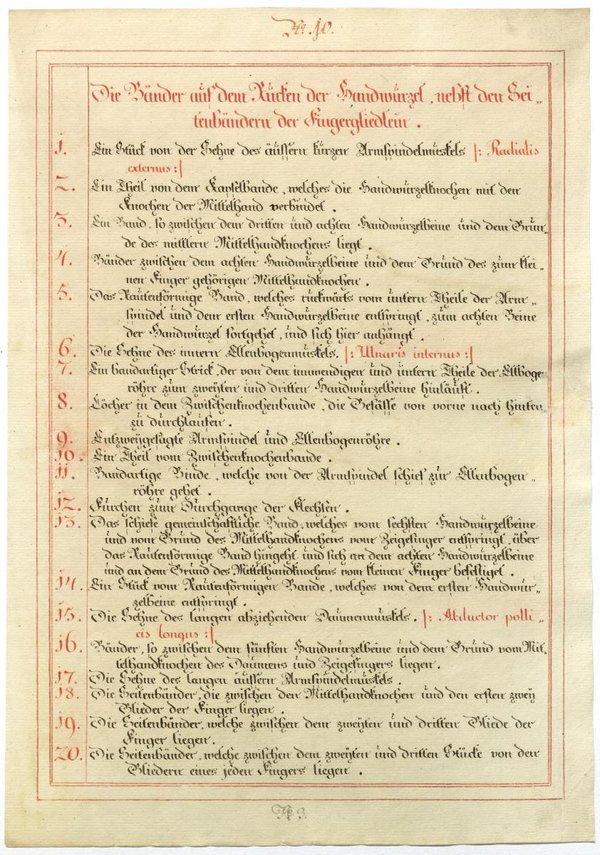 No. 10.
Die Bänder auf dem Rücken der Handwürzel, nebst den Sei-
tenbändern der Fingergliedlein.
1. Ein Stück von der Sehne des äussern kürzen Armspindelmuskels |: Radialis
externus :|
2. Ein Theil von dem Kapselbande, welches die Handwürzelknochen mit den
Knochen der Mittelhand verbindet.
3. Ein Band, so zwischen dem dritten und achten Handwürzelbeine und dem Grun-
de des mittlern Mittelhandknochens liegt.
4. Bänder zwischen dem achten Handwürzelbeine und dem Grund des zum klei-
nen Finger gehörigen Mittelhandknochen.
5. Das Rautenförmige Band, welches rückwärts vom untern Theile der Arm-
spindel und dem ersten Handwürzelbeine entspringt, zum achten Beine
der Handwürzel fortgehet, und sich hier anhängt.
6. Die Sehne des innern Ellenbogenmuskels. |: Ulnaris internus :|
7. Ein bandartiger Strick, der von dem innwendigen und untern Theile der Ellboge-
röhre zum zweyten und dritten Handwürzelbeine hinläuft.
8. Löcher in dem Zwischenknochenbande, die Gefässe von vorne nach hinten
zu durchlaufen.
9. Entzweygesägte Armspindel und Ellenbogenröhre.
10. Ein Theil vom Zwischenknochenbande.
11. Bandartige Binde, welche von der Armspindel schief zur Ellenbogen-
röhre gehet.
12. Furchen zum Durchgange der Flechsen.
13. Das schiefe gemeinschaftliche Band, welches vom sechsten Handwürzelbeine
und vom Grund des Mittelhandknochens vom Zeigefinger entspringt, über
das Rautenförmige Band hingeht und sich an dem achten Handwürzelbeine
und an dem Grund des Mittelhandknochens vom kleinen Finger befestiget.
14. Ein Stück vom Rautenförmigen Bande, welches von dem ersten Handwür-
zelbeine entspringt.
15. Die Sehne des langen abziehenden Daumenmuskels. |: Abductor polli-
cis longus :|
16. Bänder, so zwischen dem fünften Handwürzelbeine und dem Grund vom Mit-
telhandknochen des Daumens und Zeigefingers liegen.
17. Die Sehne des langen äussern Armspindelmuskels.
18. Die Seitenbänder, die zwischen den Mittelhandknochen und den ersten zwey
Glieder der Finger liegen.
19. Die Seitenbänder, welche zwischen dem zweyten und dritten Gliede der
Finger liegen.
20. Die Seitenbänder, welche zwischen dem zweyten und dritten Stücke von den
Gliedern eines jeden Fingers liegen.